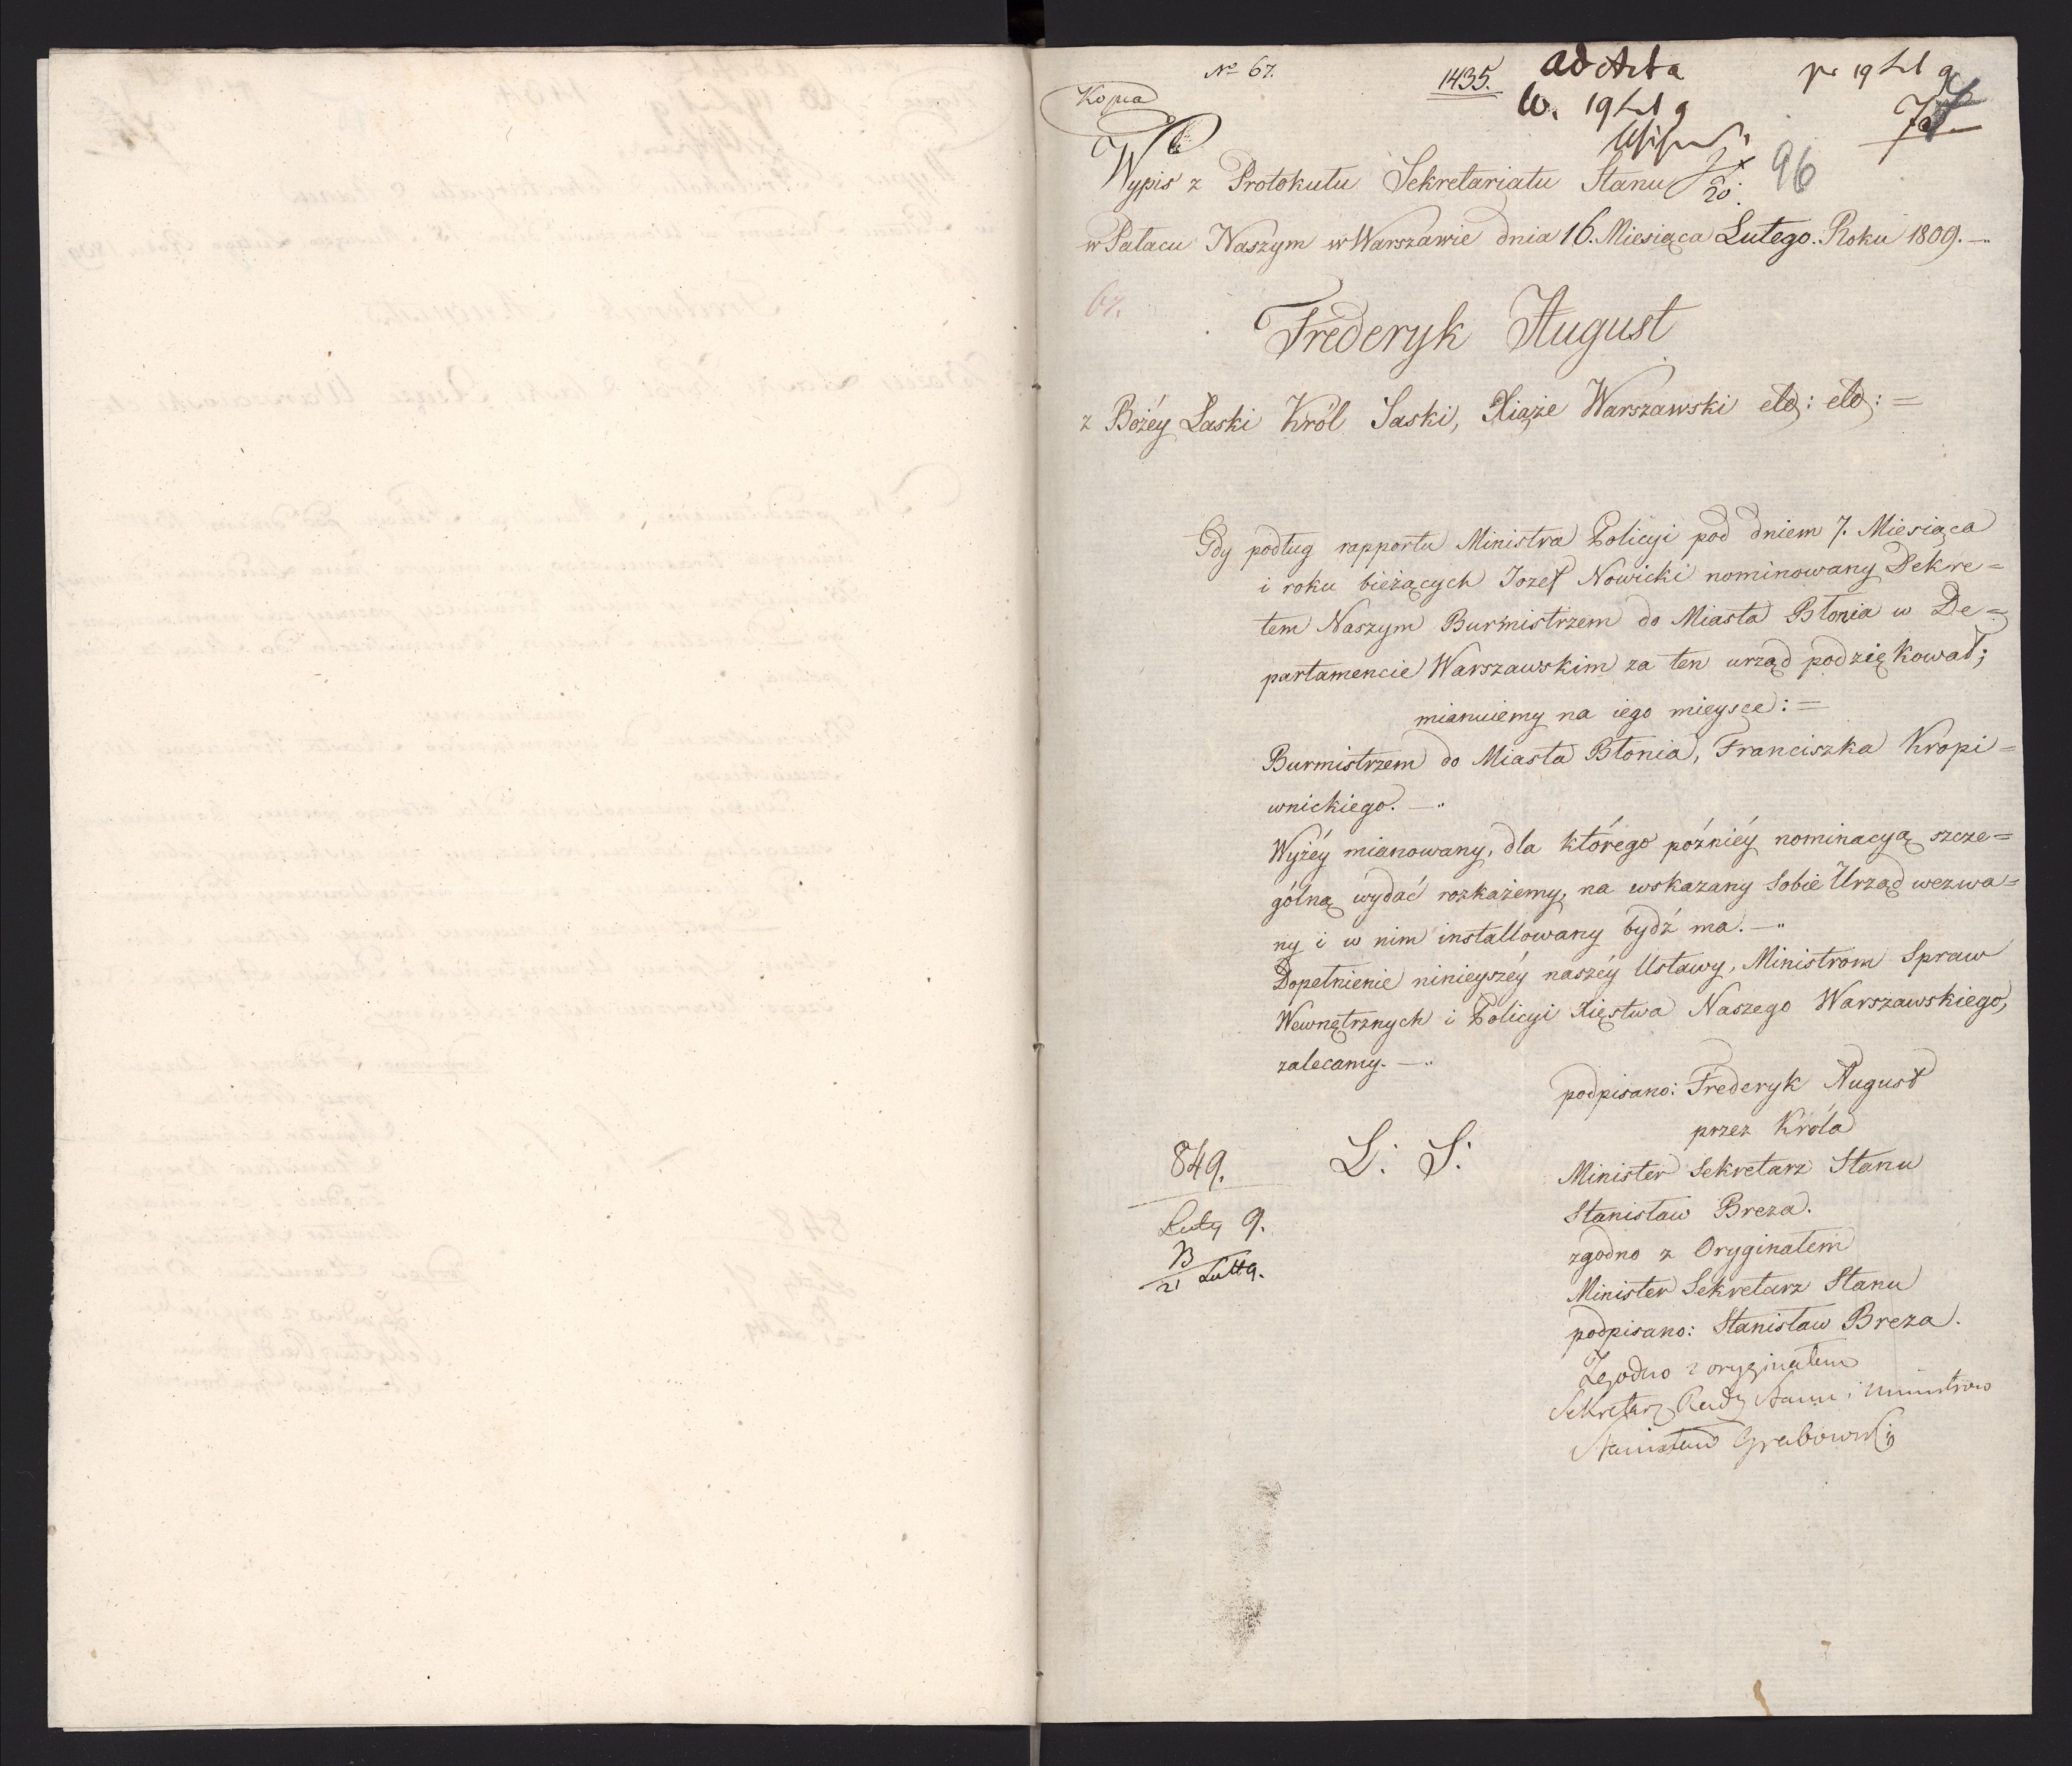 No 67.
1435.
ad Acta
pr 19 Lut 9
Kopia
W. 19 Lut 9
96
20.
Wypis z Protokułu Sekretariatu Stanu
w Pałacu Naszym w Warszawie dnia 16. Miesiąca Lutego. Roku 1809.—
67.
Frederyk August
z Bożéy Łaski Król Saski, Xiąże Warszawski etc: etc: =
Gdy podług rapportu Ministra Policyi pod dniem 7. Miesiąca
i roku bieżących Jozef Nowicki nominowany Dekre=
tem Naszym Burmistrzem do Miasta Błonia w De=
partamencie Warszawskim za ten urząd podziękował;
mianuiemy na iego mieysce: =
Burmistrzem do Miasta Błonia, Franciszka Kropi=
wnickiego.—
Wyżéy mianowany, dla którego poźniéy nominacyą szcze=
gólną wydać rozkażemy, na wskazany Sobie Urząd wezwa=
ny i w nim installowany bydź ma.—
Dopełnienie ninieyszéy naszéy Ustawy, Ministrom Spraw
Wewnętrznych i Policyi Xięstwa Naszego Warszawskiego,
zalecamy.—
podpisano: Frederyk August
przez Króla
849.
L: S:
Minister Sekretarz Stanu
Stanisław Breza.
Luty 9.
zgodno z Oryginałem
B
21 Lutt 9.
Minister Sekretarz Stanu
podpisano: Stanisław Breza.
Zgodno z oryginałem
Sekretarz Rady Stanu i Ministrow
Stanisław Grabowski